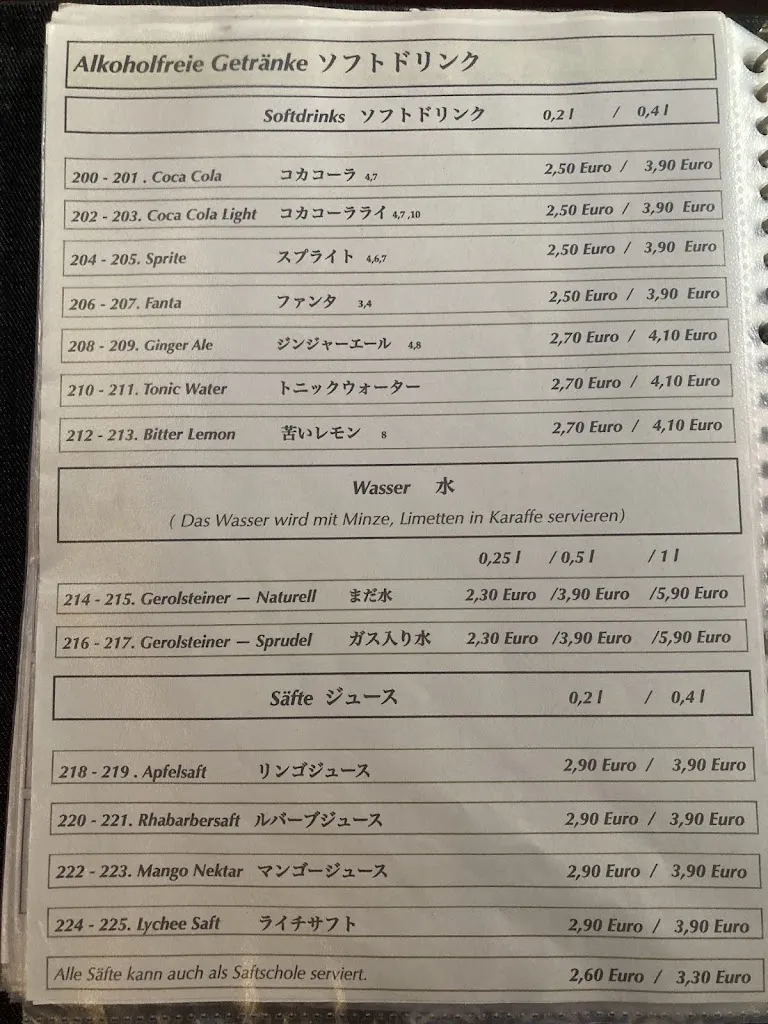 Alkoholfreie Getränke ソフトドリンク
Softdrinks ソフトドリンク 0,2 l / 0,4 l
200 - 201 . Coca Cola コカコーラ 4,7 2,50 Euro / 3,90 Euro
202 - 203. Coca Cola Light コカコーラライ 4,7 ,10 2,50 Euro / 3,90 Euro
204 - 205. Sprite スプライト 4,6,7 2,50 Euro / 3,90 Euro
206 - 207. Fanta ファンタ 3,4 2,50 Euro / 3,90 Euro
208 - 209. Ginger Ale ジンジャーエール 4,8 2,70 Euro / 4,10 Euro
210 - 211. Tonic Water トニックウォーター 2,70 Euro / 4,10 Euro
212 - 213. Bitter Lemon 苦いレモン 8 2,70 Euro / 4,10 Euro
Wasser 水
( Das Wasser wird mit Minze, Limetten in Karaffe servieren)
0,25 l / 0,5 l / 1 l
214 - 215. Gerolsteiner — Naturell まだ水 2,30 Euro /3,90 Euro /5,90 Euro
216 - 217. Gerolsteiner — Sprudel ガス入り水 2,30 Euro /3,90 Euro /5,90 Euro
Säfte ジュース 0,2 l / 0,4 l
218 - 219 . Apfelsaft リンゴジュース 2,90 Euro / 3,90 Euro
220 - 221. Rhabarbersaft ルバーブジュース 2,90 Euro / 3,90 Euro
222 - 223. Mango Nektar マンゴージュース 2,90 Euro / 3,90 Euro
224 - 225. Lychee Saft ライチサフト 2,90 Euro / 3,90 Euro
Alle Säfte kann auch als Saftschole serviert. 2,60 Euro / 3,30 Euro